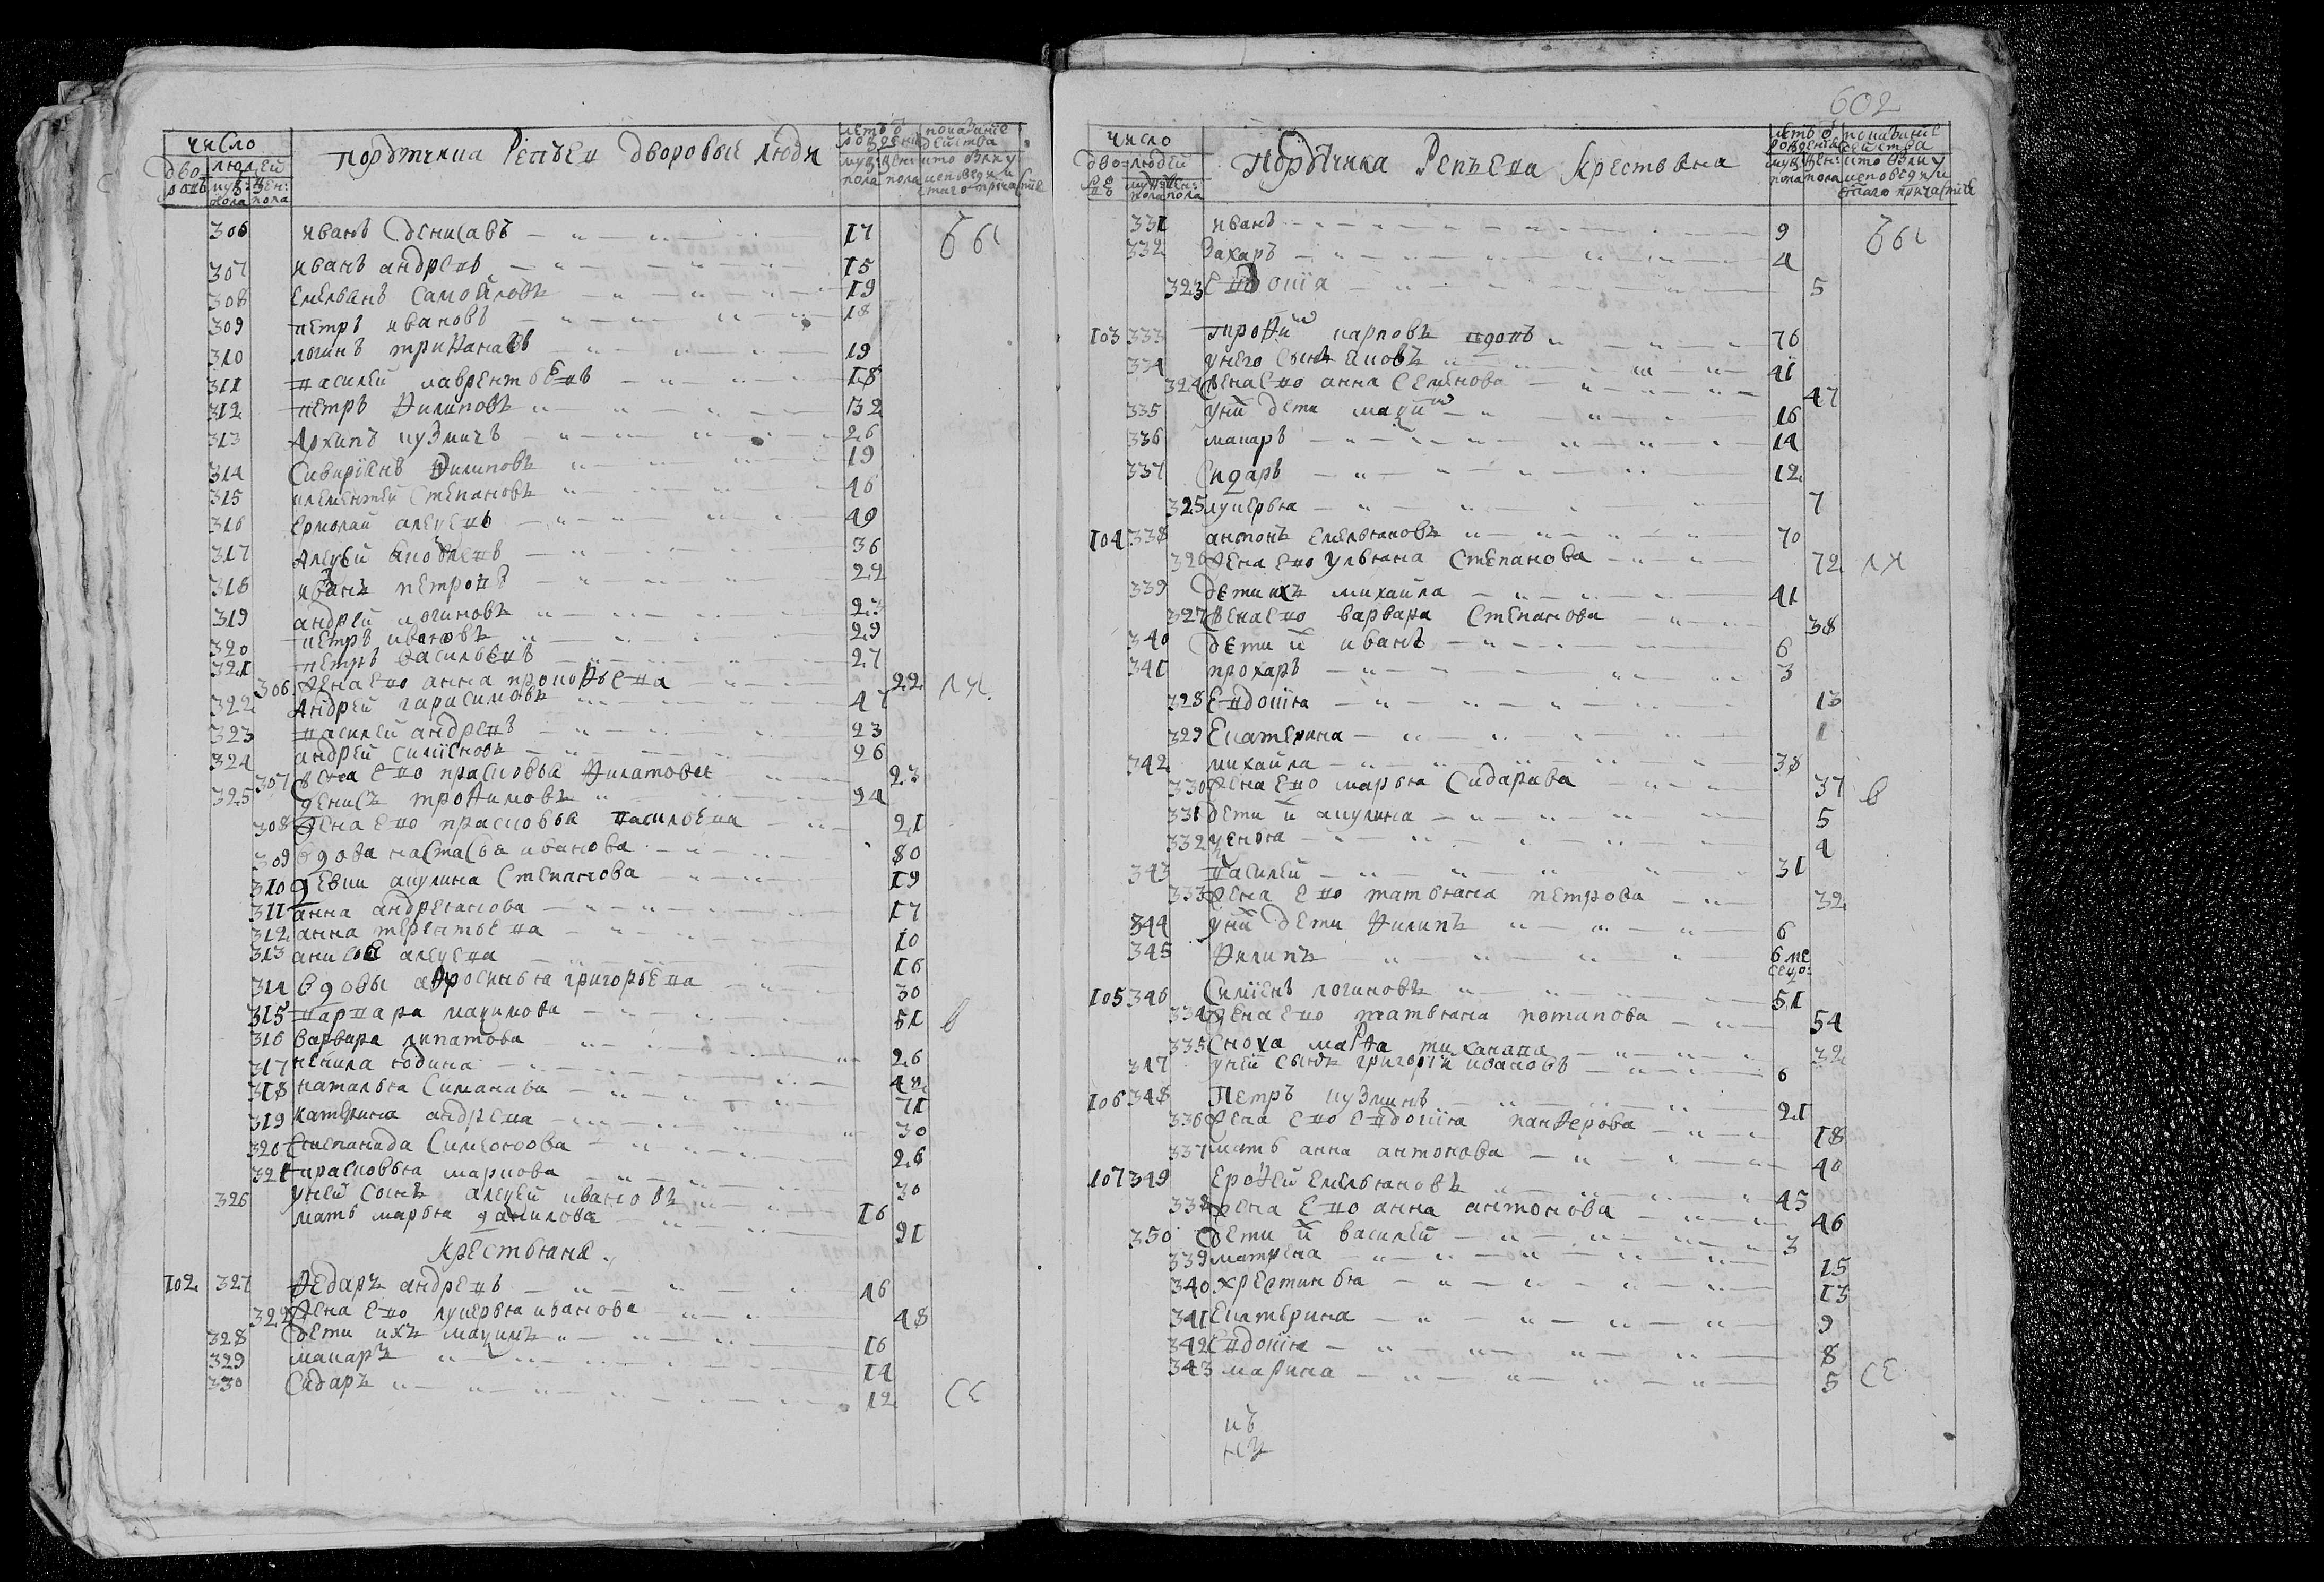 число
дво
ровъ
людей
муж: жен:
пола пола
порутчика Репъева дворовые люди
летъ о рождени
муж жен
пола пола
показание действа
кто былу исповеди и стаго причастие
306 иванъ денисавъ 17 были
307 иванъ андревъ 15
308 емельянъ самойловъ 19
309 петръ ивановъ 18
310 логинъ трифанавъ 19
311 василей лаврентьевъ 18
312 петръ филиповъ 32
313 Архипъ кузмичъ 26
314 Сивириянъ филиповъ 19
315 клементей Степановъ 46
316 ермолай алекеевъ 40
317 Алекъй яковлевъ 36
318 иванъ петровъ 22
319 андрей логиновъ 23
320 петръ ивановъ 29
321 петръ васильевъ 27
306 жена ево анна прокофьева 22
322 Андрей гарасимовъ 47
323 василей андревъ 23
324 андрей симионовъ 26
307 жена ево прасковья филатова 23
325 денисъ трофимовъ 24
308 жена ево прасковья васильева 21
309 вдова настасья иванова 80
310 девки акулина Степанова 19
311 анна андреянова 17
312 анна терентьева 10
313 анисья алекеева 16
314 вдовы афросинья григорьева 30
315 варвара макимова 51
316 варвара липатова
317 ненила юдина 26
318 наталья Симанава 42
319 катерина андрева 71
320 Степанида Симеонова 30
321 прасковья маркова 26
326 у ней сынъ алекей ивановъ 30
мать марья данилова 16
91
крестьяне.
102 327 федаръ андревъ 46
322 жена ево лукерья иванова 48
328 дети ихъ макимъ 16
329 макаръ 14
330 Сидаръ 12 се
602
число
дво
ро
людей
муж: жен:
пола пола
Порутчика Репъева крестьяне
летъ о рождени
муж жен:
пола пола
показание действа
кто былу исповеди и стаго причастие
331 иванъ 9 были
332 Захаръ 4
323 Евдокия 5
103 333 трофим карповъ вдовъ 76
334 у него сынъ яковъ 41
324 жена ево анна Семенова 47
335 у ни дети маким 16
336 макаръ 14
337 Сидаръ 12
325 лукерья 7
104 338 антонъ емельяновъ 70
326 жена ево ульяна Степанова 72
339 дети ихъ михайла 41
327 жена ево варвара Степанова 38
340 дети и иванъ 6
341 прохаръ 3
328 Евдокия 13
329 Екатерина 1
342 михайла 38
330 жена ево марья Сидарава 37
331 дети и акулина 5
332 4
343 василей 31
333 жена ево татьяна петрова 32
344 у ни дети филипъ 6
345 филипъ 6 ме сецо:
105 346 Симионъ логиновъ 51
334 жена ево татьяна потапова 54
335 сноха марфа 32
347 у ней сынъ григорей ивановъ 6
106 348 Петръ кузминъ 21
336 жена ево евдокия панферова 18
337 мать анна антонова 40
107 349 ерофей емельяновъ 45
338 жена ево анна антонова 46
350 дети й василей 3
339 матрена 15
340 хрестинья 13
341 Екатерина 9
342 Евдокия 8
343 марина 5 се